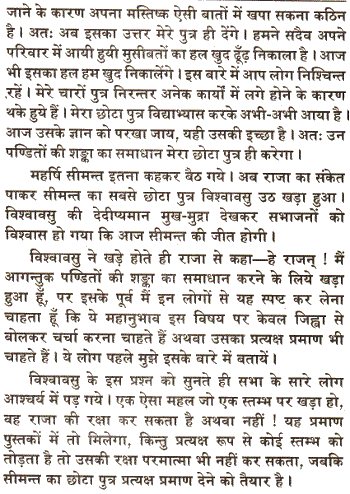 जाने के कारण अपना मस्तिष्क ऐसी बातों में खपा सकना कठिन
है । अतः अब इसका उत्तर मेरे पुत्र ही देंगे । हमने सदैव अपने
परिवार में आयी हुयी मुसीबतों का हल खुद ढूँढ़ निकाला है । आज
भी इसका हल हम खुद निकालेंगे । इस बारे में आप लोग निश्चिन्त
रहें । मेरे चारों पुत्र निरन्तर अनेक कार्यों में लगे होने के कारण
थके हुये हैं । मेरा छोटा पुत्र विद्याभ्यास करके अभी-अभी आया है ।
आज उसके ज्ञान को परखा जाय, यही उसकी इच्छा है । अतः उन
पण्डितों की शङ्का का समाधान मेरा छोटा पुत्र ही करेगा ।
महर्षि सीमन्त इतना कहकर बैठ गये । अब राजा का संकेत
पाकर सीमन्त का सबसे छोटा पुत्र विश्वावसु उठ खड़ा हुआ ।
विश्वावसु की देदीप्यमान मुख-मुद्रा देखकर सभाजनों को
विश्वास हो गया कि आज सीमन्त की जीत होगी ।
विश्वावसु ने खड़े होते ही राजा से कहा—हे राजन् ! मैं
आगन्तुक पण्डितों की शङ्का का समाधान करने के लिये खड़ा
हुआ हूँ, पर इसके पूर्व मैं इन लोगों से यह स्पष्ट कर लेना
चाहता हूँ कि ये महानुभाव इस विषय पर केवल जिह्वा से
बोलकर चर्चा करना चाहते हैं अथवा उसका प्रत्यक्ष प्रमाण भी
चाहते हैं । ये लोग पहले मुझे इसके बारे में बतावें ।
विश्वावसु के इस प्रश्न को सुनते ही सभा के सारे लोग
आश्चर्य में पड़ गये । एक ऐसा महल जो एक स्तम्भ पर खड़ा हो,
वह राजा की रक्षा कर सकता है अथवा नहीं ! यह प्रमाण
पुस्तकों में तो मिलेगा, किन्तु प्रत्यक्ष रूप से कोई स्तम्भ को
तोड़ता है तो उसकी रक्षा परमात्मा भी नहीं कर सकता, जबकि
सीमन्त का छोटा पुत्र प्रत्यक्ष प्रमाण देने को तैयार है ।